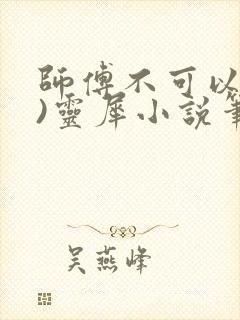 師傅不可以
)靈犀小說筆
吳燕峰